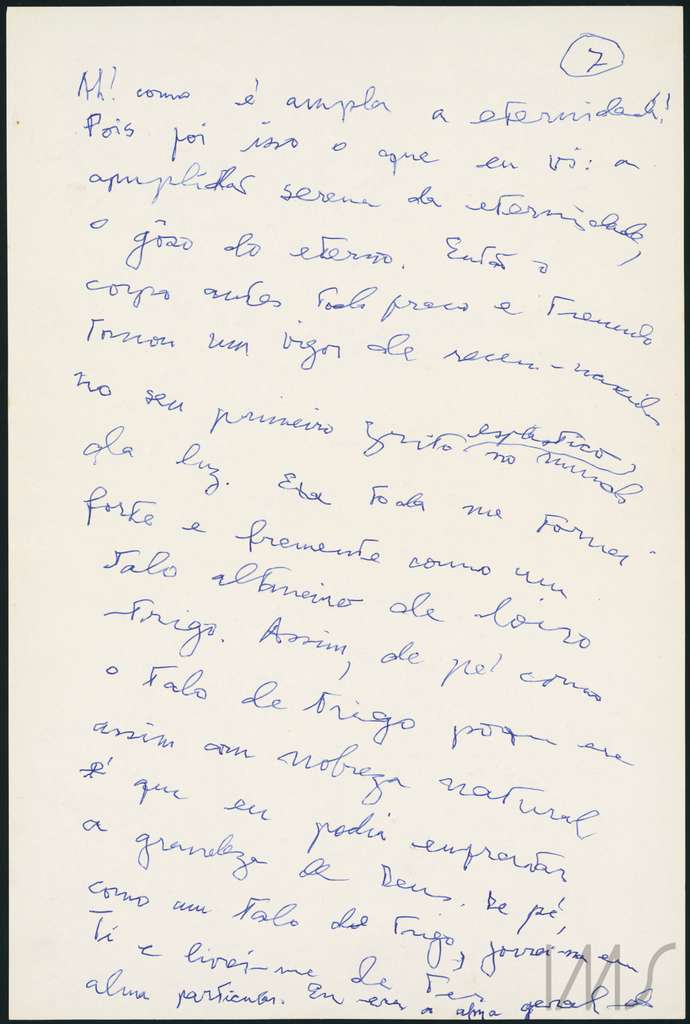 7
Ah! como é ampla a eternidade!
Pois foi isso o que eu vi: a
amplidão serena da eternidade,
o gôso do eterno. Então o
corpo antes todo fraco e tremendo
tomou um vigor de recem-nascido
no seu primeiro grito esplástico,
no mundo
da luz. Eu toda me tornei
forte e fremente como um
talo altaneiro de loiro
trigo. Assim, de pé como
o talo de trigo porque era
assim com nobreza natural
é que eu podia enfrentar
a grandeza de Deus. De pé,
como um talo de trigo, em
Ti e livrei-me de ter
alma particular. Eu era a alma geral de
IMS